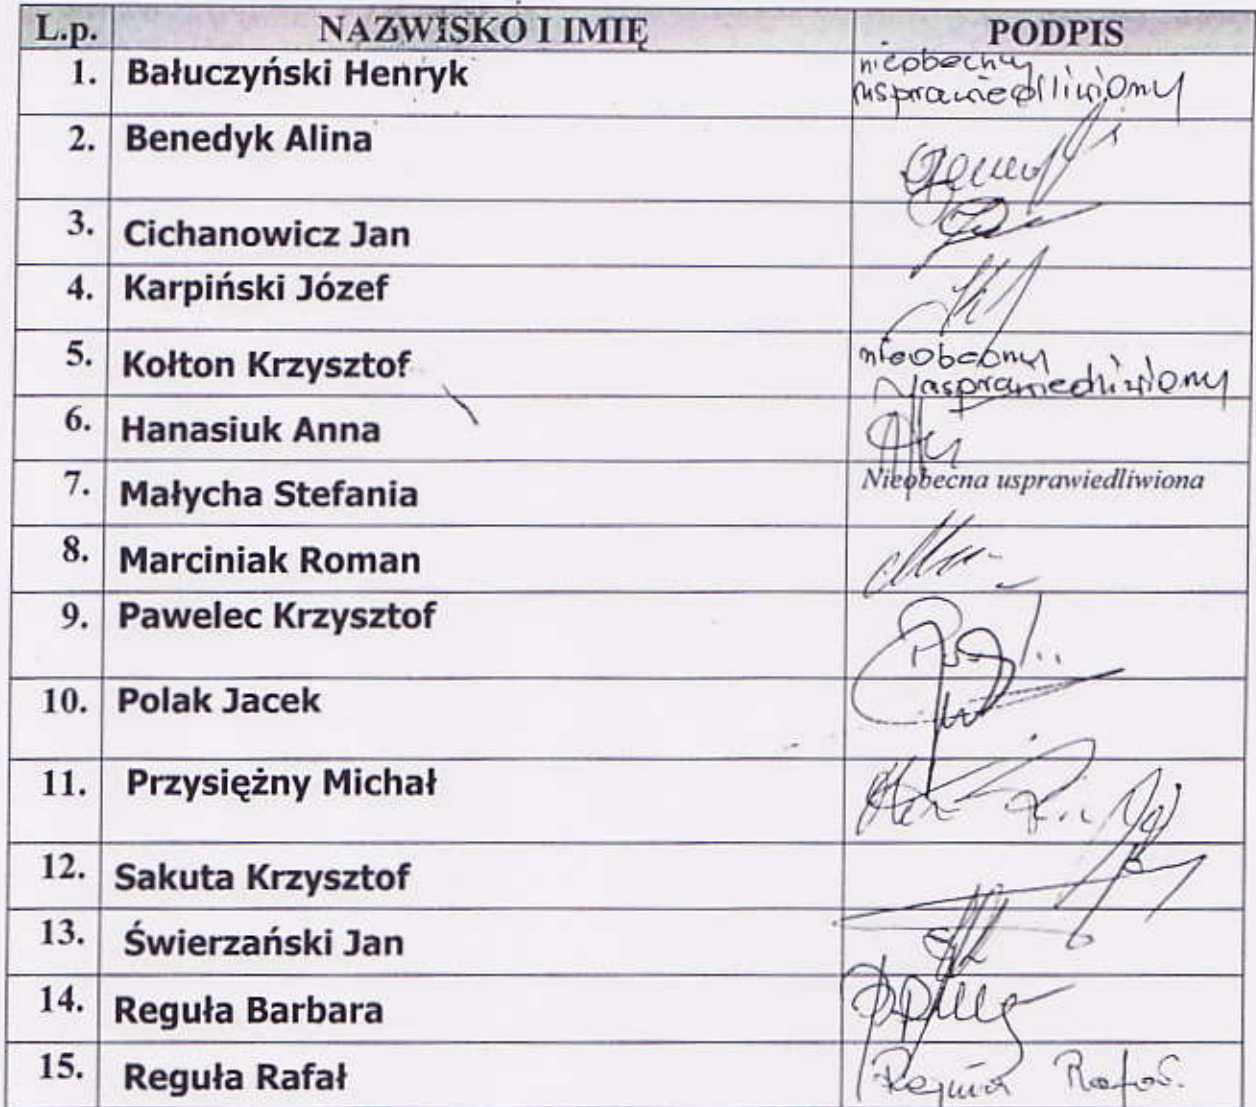 L.p. NAZWISKO I IMIĘ PODPIS
1. Bałuczyński Henryk nieobecny
usprawiedliwiony
2. Benedyk Alina
3. Cichanowicz Jan
4. Karpiński Józef
5. Kołton Krzysztof nieobecny
usprawiedliwiony
6. Hanasiuk Anna
7. Małycha Stefania Nieobecna usprawiedliwiona
8. Marciniak Roman
9. Pawelec Krzysztof
10. Polak Jacek
11. Przysiężny Michał
12. Sakuta Krzysztof
13. Świerzański Jan
14. Reguła Barbara
15. Reguła Rafał Reguła Rafał